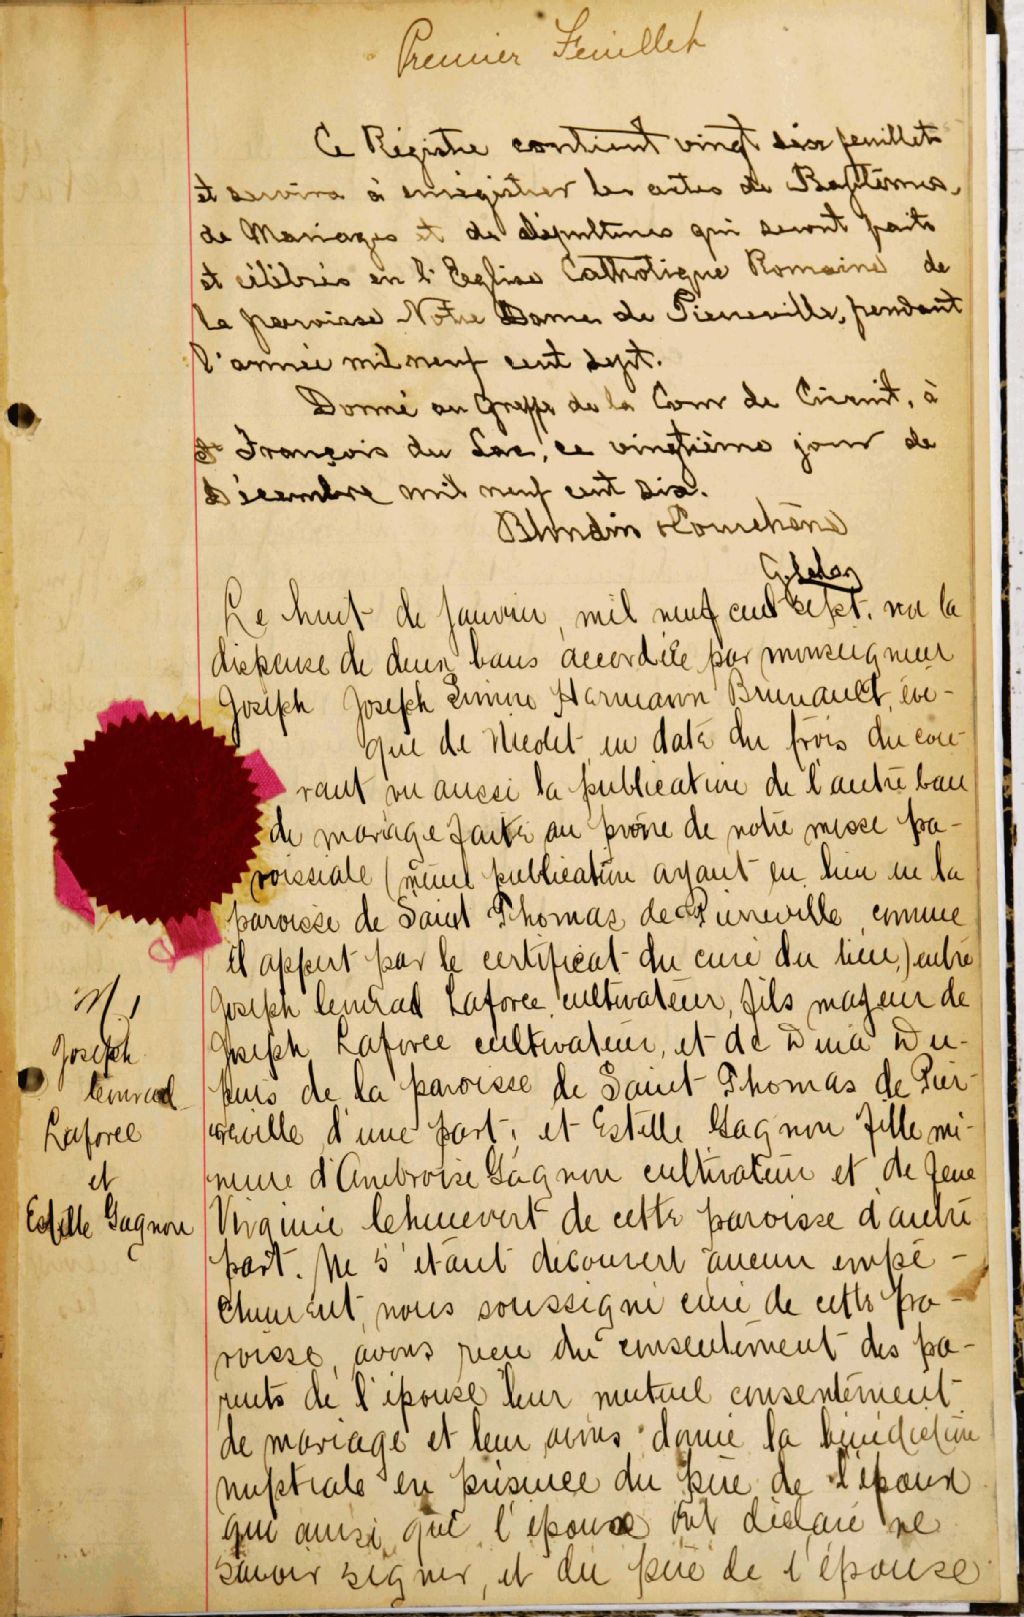 Premier Feuillet
Ce Régistre contient vingt six feuillets
et servira à enrégistrer les actes de Baptêmes,
de Mariages et de Sépultures qui seront faits
et célébrés en l'Eglise Catholique Romaine de
la paroisse Notre Dame de Pierreville, pendant
l'année mil neuf cent sept.
Donné au Greffe de la Cour de Circuit, à
St François du Lac, ce vingtième jour de
Décembre mil neuf cent six.
Blondin &
Le huit de Janvier, mil neuf cent sept, vu la
dispense de deux bans accordée par monseigneur
Joseph Joseph Simon Hermann Brunault, évê-
que de Nicolet en date du trois du cou-
rant vu aussi la publication de l'autre ban
de mariage faite au prône de notre messe pa-
roissiale (même publication ayant eu lieu en la
paroisse de Saint Thomas de Pierreville, comme
il appert par le certificat du curé du lieu,) entre
Joseph Conrad Laforce, cultivateur, fils majeur de
Joseph Laforce cultivateur, et de Dina Du-
puis de la paroisse de Saint Thomas de Pier-
reville d'une part; et Estelle Gagnon fille mi-
neure d'Ambroise Gagnon cultivateur et de feue
Virginie Chenevert de cette paroisse d'autre
part. Ne s'étant découvert aucun empê-
chement, nous soussigné curé de cette pa-
roisse, avons reçu du consentement des pa-
rents de l'épouse leur mutuel consentement
de mariage et leur avons donné la bénédiction
nuptiale en présence du père de l'époux
qui ainsi que l'épouse ont déclaré ne
savoir signer, et du père de l'épouse
M,
Joseph
Conrad
Laforce
et
Estelle Gagnon